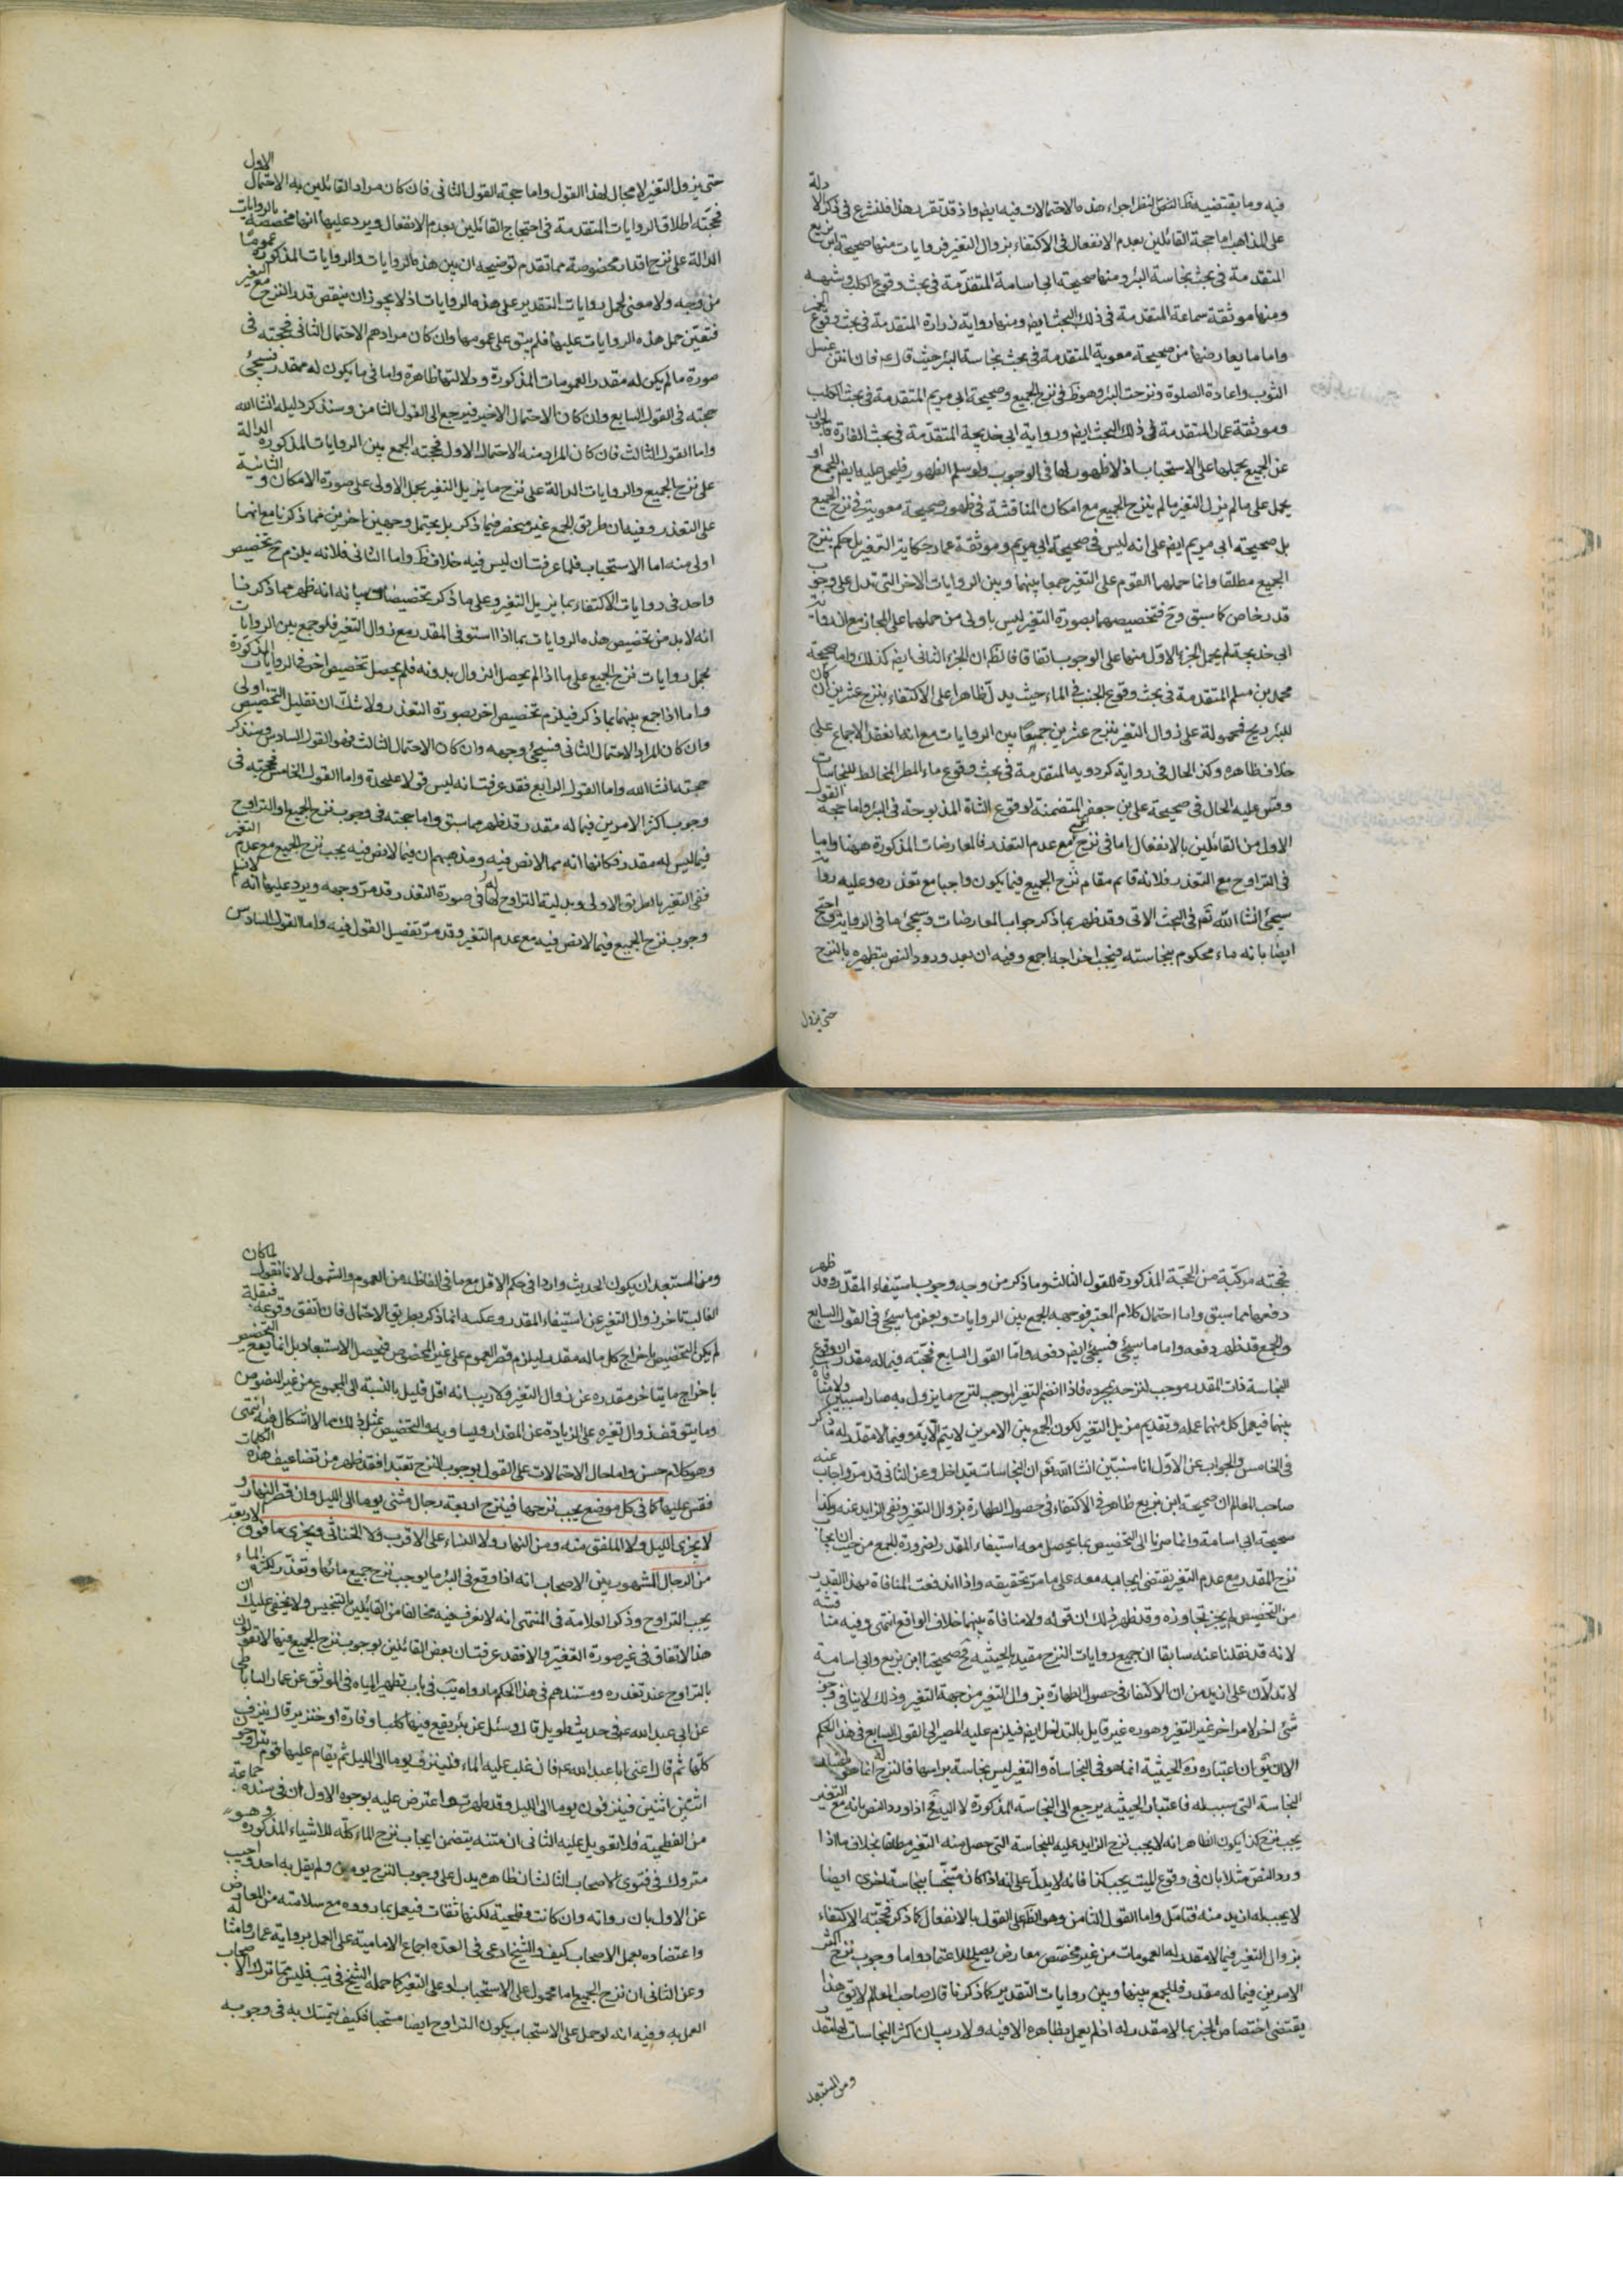 فيه وما يقتضيه ظ النص النظر اجراء هذه الاحتمالات فيه ايض واذ قد تقرر هذا فلنشرع في ذكر الادلة
على المذاهب اما حجة القائلين بعدم الانفعال في الاكتفاء بزوال التغير فروايات منها صحيحة ابن بزيع
المتقدمة في بحث نجاسة البئر ومنها صحيحة ابي اسامة المتقدمة في بحث وقوع الكلب وشبهه
ومنها موثقة سماعة المتقدمة في ذلك البحث ايض ومنها رواية زرارة المتقدمة في بحث وقوع الخمر
واما ما يعارضها من صحيحة معوية المتقدمة في بحث نجاسة البئر حيث قال ع فان انتن غسل
الثوب واعادة الصلوة ونزحت البئر وهو ظ في نزح الجميع وصحيحة ابي مريم المتقدمة في بحث الكلب
وموثقة عمار المتقدمة في ذلك البحث ايض ورواية ابي خديجة المتقدمة في بحث الفارة فالجواب
عن الجميع بحملها على الاستحباب اذ لا ظهور لها في الوجوب ولو سلم الظهور فليحمل عليه ايض للجمع او
يحمل على ما لم يزل التغير ما لم ينزح الجميع مع امكان المناقشة في ظهور صحيحة معوية في نزح الجميع
بل صحيحة ابي مريم ايض على انه ليس في صحيحة ابي مريم وموثقة عمار حكاية التغير بل حكم بنزح
الجميع مطلقا وانما حملهما القوم على التغير جمعا بينهما وبين الروايات الاخر التي تدل على وجوب
قدر خاص كما سبق وح فتخصيصهما بصورة التغير ليس باولى من حملهما على المجاز مع ان رواية
ابي خديجة لم يحمل الجزء الاول منها على الوجوب اتفاقا فالظ ان الجزء الثاني ايض كذلك واما صحيحة
محمد بن مسلم المتقدمة في بحث وقوع الجنب في الماء حيث يدل ظاهرا على الاكتفاء بنزح عشرين ان كان
للبئر ريح فمحمولة على زوال التغير بنزح عشرين جمعا بين الروايات مع انه انعقد الاجماع على
خلاف ظاهره وكذا الحال في رواية كردويه المتقدمة في بحث وقوع ماء المطر المخالط للنجاسات
وقس عليه الحال في صحيحة علي بن جعفر المتضمنة لوقوع الشاة المذبوحة في البئر واما حجة القول
الاول من القائلين بالانفعال اما في نزح مع عدم التعذر فالمعارضات المذكورة ههنا واما
في التراوح مع التعذر فلانه قائم مقام نزح الجميع فيما يكون واجبا مع تعذره وعليه رواية
سيجئ انشاء الله تعم في البحث الاتي وقد ظهر بما ذكر جواب المعارضات وسيجئ ما في الرواية واحتج
ايضا بانه ماء محكوم بنجاسته فيجب اخراجه اجمع وفيه ان بعد ورود النص بتطهره بالنزح
حتى يزول
حتى يزول التغير لا مجال لهذا القول واما حجة القول الثاني فان كان مراد القائلين به الاحتمال الاول
فحجته اطلاق الروايات المتقدمة في احتجاج القائلين بعدم الانفعال ويرد عليها انها مخصصة بالروايات
الدالة على نزح اقدار مخصوصة مما تقدم توضيحه ان بين هذه الروايات والروايات المذكورة عموما
من وجه ولا معنى لحمل روايات التقدير على هذه الروايات اذ لا يجوز ان ينقص قدر النزح مع التغير
فتعين حمل هذه الروايات عليها فلم يبق على عمومها وان كان مرادهم الاحتمال الثاني فحجته في
صورة ما لم يكن له مقدر العمومات المذكورة ودلالتها ظاهرة واما في ما يكون له مقدر فسيجئ
حجته في القول السابع وان كان الاحتمال الاخير فيرجع الى القول الثامن وسنذكر دليله انشاء الله
واما القول الثالث فان كان المراد منه الاحتمال الاول فحجته الجمع بين الروايات المذكورة الدالة
على نزح الجميع والروايات الدالة على نزح ما يزيل التغير بحمل الاولى على صورة الامكان والثانية
على التعذر وفيه ان طريق الجمع غير منحصر فيما ذكر بل يحتمل وجهين اخرين مما ذكرنا مع انهما
اولى منه اما الاستحباب فلما عرفت ان ليس فيه خلاف ظ واما الثاني فلانه يلزم ح تخصيص
واحد في روايات الاكتفاء بما يزيل التغير وعلى ما ذكر تخصيصات بيانه انه ظهر مما ذكرنا
انه لا بد من تخصيص هذه الروايات بما اذا استوفى المقدر مع زوال التغير فلو جمع بين الروايات
بحمل روايات نزح الجميع على ما اذا لم يحصل الزوال بدونه فلم يحصل تخصيص اخر في الروايات المذكورة
واما اذا جمع بينهما بما ذكر فيلزم تخصيص اخر بصورة التعذر ولا شك ان تقليل التخصيص اولى
وان كان المراد الاحتمال الثاني فسيجئ وجهه وان كان الاحتمال الثالث فهو القول السادس وسنذكر
حجته انشاء الله واما القول الرابع فقد عرفت انه ليس قولا على حدة واما القول الخامس فحجته في
وجوب اكثر الامرين فيما له مقدر قد ظهر مما سبق واما حجته في وجوب نزح الجميع والتراوح
فيما ليس له مقدر فكانها انه مما لا نص فيه ومذهبهم ان فيما لا نص فيه يجب نزح الجميع مع عدم التغير
ففي التغير بالطريق الاولى وبدلية التراوح لها في صورة التعذر قد مر وجهه ويرد عليها انه لا نسلم
وجوب نزح الجميع فيما لا نص فيه مع عدم التغير وقد مر تفصيل القول فيه واما القول السادس
فحجته مركبة من الحجة المذكورة للقول الثالث وما ذكر من وجه وجوب استيفاء المقدر وقد ظهر
دفعها مما سبق واما احتمال كلام المعتبر فوجهه الجمع بين الروايات وبعض ما سيجئ في القول السابع
والجمع قد ظهر دفعه واما ما سيجئ فسيجئ ايض دفعه واما القول السابع فحجته فيما له مقدر ان وقوع
النجاسة ذات المقدر موجب لنزحه بمجرده فاذا انضم التغير الموجب لنزح ما يزول به صارا سببين ولا منافاة
بينهما فيعمل كل منهما عمله وتقديم مزيل التغير لكون الجمع بين الامرين لا يتم الا به وفيما لا مقدر له ما ذكر
في الخامس والجواب عن الاول انا سنبين انشاء الله تعم ان النجاسات يتداخل وعن الثاني قد مر واجاب عنه
صاحب المعالم ان صحيحة ابن بزيع ظاهر في الاكتفاء في حصول الطهارة بزوال التغير ونفى الزايد عنه وكذا
صحيحة ابي اسامة وانما صرنا الى التخصيص بما يحصل معه استيفاء المقدر لضرورة الجمع من حيث ان ايجاب
نزح المقدر مع عدم التغير يقتضي ايجابه معه على ما مر تحقيقه واذا اندفعت المنافاة بهذا القدر
من التخصيص لم يجز تجاوزه وقد ظهر بذلك ان قوله ولا منافاة بينهما خلاف الواقع انتهى وفيه مناقشة
لانه قد نقلنا عنه سابقا ان جميع روايات النزح مقيد بالحيثية فح صحيحتا ابن بزيع وابي اسامة
لا تدلان على ازيد من ان الاكتفاء في حصول الطهارة بزوال التغير من جهة التغير وذلك لا ينافي وجوب
شئ اخر لامر اخر غير التغير وهوره غير قايل بالتداخل ايض فيلزم عليه المصير الى القول السابع في هذا الحكم
الا ان يق ان اعتباره ره الحيثية انما هو في النجاسات والتغير ليس نجاسة براسها فالنزح انما هو له
النجاسة التي سبب له فاعتبار الحيثية يرجع الى النجاسة المذكورة لا اليه فح اذا ورد النص بانه مع التغير
يجب نزح كذا يكون الظاهر انه لا يجب نزح الزايد عليه للنجاسة التي حصل منه التغير مطلقا بخلاف ما اذا
ورد النص مثلا بان في وقوع الميت يجب كذا فانه لا يدل على انه اذا كان متنجسا بنجاسة اخرى ايضا
لا يجب له ازيد منه فتامل واما القول الثامن وهو الظ على القول بالانفعال كما ذكر فحجته الاكتفاء
بزوال التغير فيما لا مقدر له العمومات من غير مخصص معارض يصلح للاعتماد واما وجوب نزح اكثر
الامرين فيما له مقدر فللجمع بينها وبين روايات التقدير كما ذكرنا قال صاحب المعالم لا يق هذا
يقتضي اختصاص الخبر بما لا مقدر له اذ لم يعمل بظاهره الا فيه ولا ريب ان اكثر النجاسات لها مقدر
ومن المستبعد
ومن المستبعد ان يكون الحديث واردا في حكم الاقل مع ما في الفاظه من العموم والشمول لانا نقول لما كان
الغالب تاخر زوال التغير عن استيفاء المقدر وعكسه انما ذكر بطريق الاحتمال فان اتفق وقوعه فبقلة
لم يكن التخصيص باخراج كل ما له مقدر ليلزم قصر العموم على غير المخصوص فيحصل الاستبعاد بل انما يقع التخصيص
باخراج ما يتاخر مقدره عن زوال التغير ولا ريب انه اقل قليل بالنسبة الى المجموع من غير المنصوص
وما يتوقف زوال تغيره على الزيادة عن المقدار وما يساويه والتخصيص بمثل ذلك مما لا اشكال فيه انتهى
وهو كلام حسن واما حال الاحتمالات على القول بوجوب النزح تعبدا فقد ظهر من تضاعيف هذه الكلمات
فقس عليها كما في كل موضع يجب نزحها فينزح اربعة رجال مثنى يوما الى الليل وان قصر النهار و
لا يجزى الليل ولا الملفق منه ومن النهار ولا النساء على الاقرب ولا الخناثى ويجزى ما فوق الاربعة
من الرجال المشهور بين الاصحاب انه اذا وقع في البئر ما يوجب نزح جميع مائها وتعذر لكثرة الماء
يجب التراوح وذكر العلامة في المنتهى انه لا نعرف فيه مخالفا من القائلين بالتنجيس ولا يخفى عليك ان
هذا الاتفاق في غير صورة التغير والا فقد عرفت ان بعض القائلين بوجوب نزح الجميع فيها لا يقولون
بالتراوح عند تعذره ومستندهم في هذا الحكم ما رواه يب في باب تطهير المياه في الموثق عن عمار الساباطي
عن ابي عبد الله ع في حديث طويل قال وسئل عن بئر يقع فيها كلب او فارة او خنزير قال ينزف
كلها ثم قال اعني ابا عبد الله ع فان غلب عليه الماء فلينزف يوما الى الليل ثم يقام عليها قوم يتراوحون
اثنين اثنين فينزفون يوما الى الليل وقد طهرت واعترض عليه بوجوه الاول ان في سنده جماعة
من الفطحية فلا تعويل عليه الثاني ان متنه يتضمن ايجاب نزح الماء كله للاشياء المذكورة وهو
متروك في فتوى الاصحاب الثالث ان ظاهره يدل على وجوب النزح يومين ولم يقل به احد واجيب
عن الاول بان رواته وان كانت فطحية لكنها ثقات فيعمل بما رووه مع سلامته من المعارض
واعتضاده بعمل الاصحاب كيف والشيخ ادعى في العدة اجماع الامامية على العمل برواية عمار وامثاله
وعن الثاني ان نزح الجميع اما محمول على الاستحباب او على التغير كما حمله الشيخ في يب فليس مما ترك الاصحاب
العمل به وفيه انه لو حمل على الاستحباب يكون التراوح ايضا مستحبا فكيف يتمسك به في وجوبه